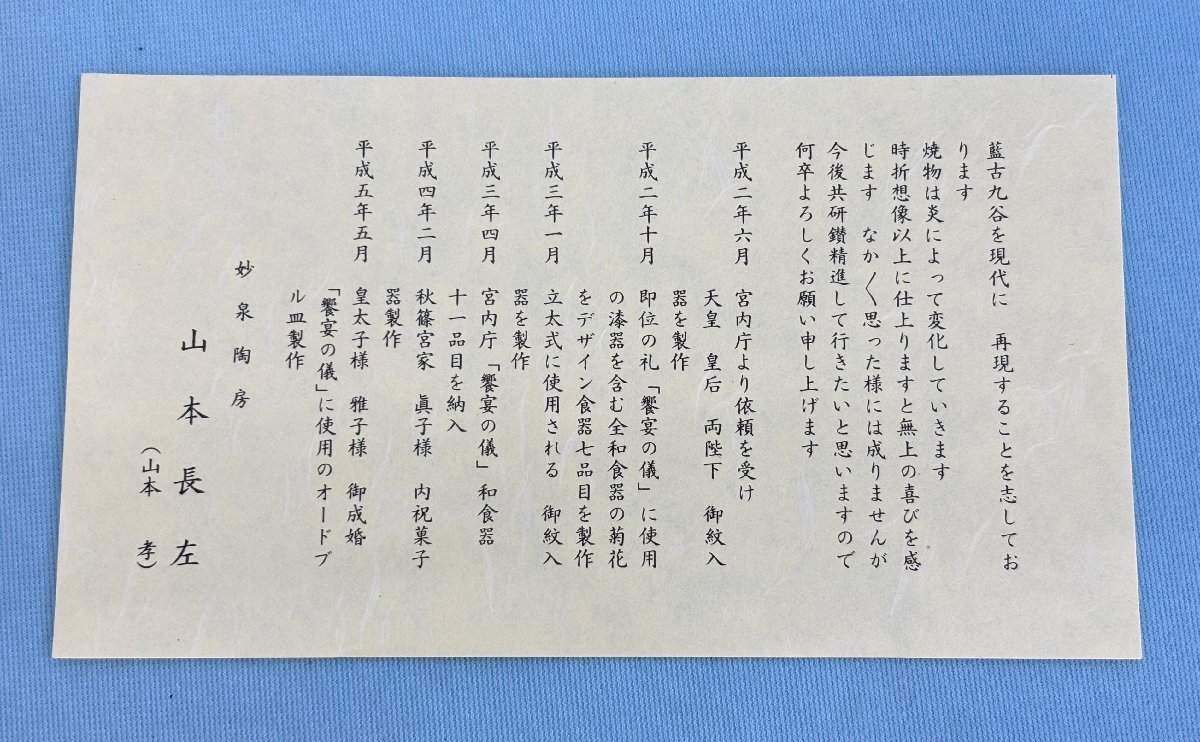 藍古九谷を現代に　再現することを志してお
ります
焼物は炎によって変化していきます
時折想像以上に仕上りますと無上の喜びを感
じます　なか〱思った様には成りませんが
今後共研鑽精進して行きたいと思いますので
何卒よろしくお願い申し上げます
平成二年六月　宮内庁より依頼を受け
天皇　皇后　両陛下　御紋入
器を製作
平成二年十月　即位の礼「饗宴の儀」に使用
の漆器を含む全和食器の菊花
をデザイン食器七品目を製作
平成三年一月　立太式に使用される　御紋入
器を製作
平成三年四月　宮内庁「饗宴の儀」和食器
十一品目を納入
平成四年二月　秋篠宮家　眞子様　内祝菓子
器製作
平成五年五月　皇太子様　雅子様　御成婚
「饗宴の儀」に使用のオードブ
ル皿製作
妙泉陶房
山本長左
（山本　孝）